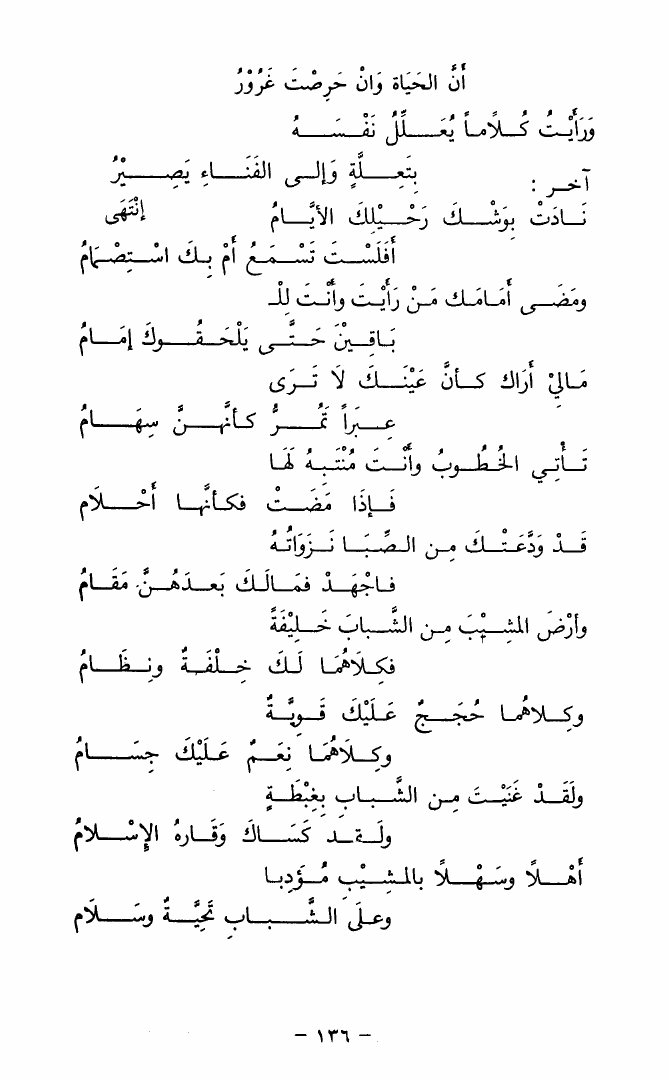 أَنَّ الحَيَاة وَانْ حَرِصْتَ غَرُوْرُ
وَرَأَيْتُ كُلَامَاً يُعَلِّلُ نَفْسَهُ
بِتَعِلَّةٍ وَإلى الفَنَاءِ يَصِيْرُ
آخر :
نَادَتْ بِوَشْكِ رَحْيِلِكَ الأيَّامُ إنْتَهَى
أَفَلَسْتَ تَسْمَعُ أَمْ بِكَ اسْتِصْمَامُ
ومَضَى أَمَامَك مَنْ رَأَيْتَ وأَنْتَ لِلْـ
بَاقِيْنَ حَتَّى يَلْحَقُوكَ إمَامُ
مَاليْ أَرَاك كأنَّ عَيْنَكَ لَا تَرَى
عِبَراً تَمُرُّ كأنَّهُنَّ سِهَامُ
تَأتي الخُطُوبُ وأَنْتَ مُنْتَبِهُ لَهَا
فَإذَا مَضَتْ فكأنَّها أَحْلَام
قَدْ وَدَّعَتْكَ مِن الصِّبَا نَزَوَاتُهُ
فاجْهَدْ فمَالَكَ بَعدَهُنَّ مَقَامُ
وأرْضَ المشِيْبَ مِن الشَّبابَ خَلِيْفَةً
فكِلَاهُمَا لَكَ خِلْفَةٌ ونِظَامُ
وكِلَاهُما حُجَجٌ عَلَيْكَ قَوِيَّةٌ
وكِلَاهُمَا نِعَمٌ عَلَيْكَ جِسَامُ
ولَقَدْ غَنَيْتَ مِن الشَّبابِ بِغِبْطَةٍ
ولَقد كَسَاكَ وَقَارهُ الإسْلامُ
أَهْلاً وَسَهْلاً بالمشِيْبِ مُؤَدِبا
وعلَى الشَّبابِ تَحِيَّةٌ وسَلَام
- ١٣٦ -